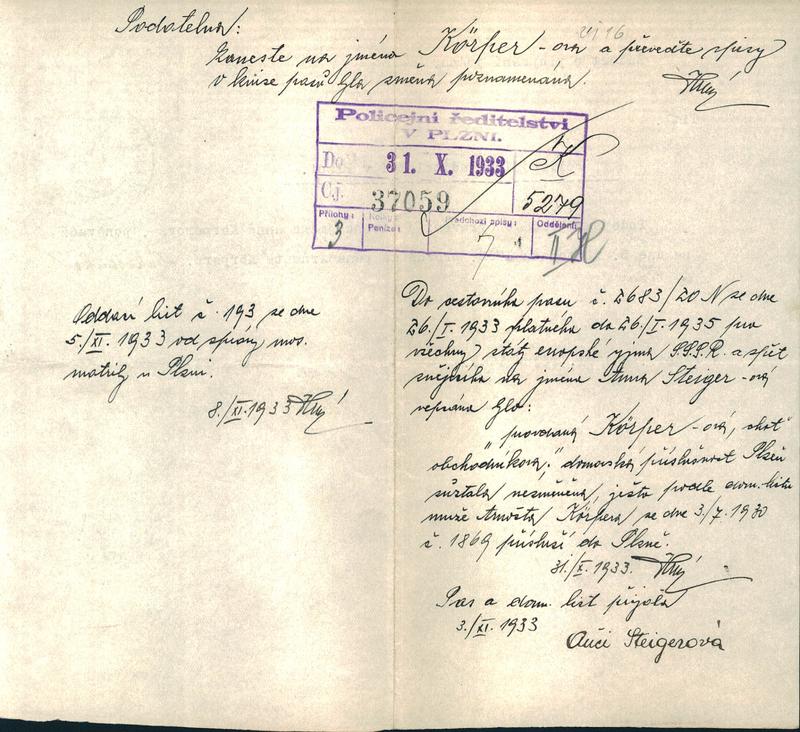 Podatelna:
VI 16
Zaneste na jméno Körper-ová a převeďte spisy
v knize pasů byla změna poznamenána.
Policejní ředitelství
V PLZNI.
Do 31. X. 1933
K
Čj. 37059
5279
Přílohy: 3
Kolky: Peníze:
Předchozí spisy: 7
Oddělení: II
Oddací list č. 193 se dne
5./XI. 1933 od správy
matriky v Plzni.
8./XI. 1933
Do cestovního pasu č. 2683/20 N se dne
26./I. 1933 platného do 26./I. 1935 pro
všechny státy evropské vyjma S.S.S.R. a zpět
znějícího na jméno Anna Steiger-ová
vepsáno bylo:
"provdaná Körper-ová, choť
obchodníkova." domovská příslušnost Plzeň
zůstala nezměněna, ježto podle dom. listu
muže Arnošta Körpera se dne 3./7. 1930
č. 1869 přísluší do Plzně.
31./X. 1933.
Pas a dom. list přijala
3./XI. 1933
Anči Steigerová